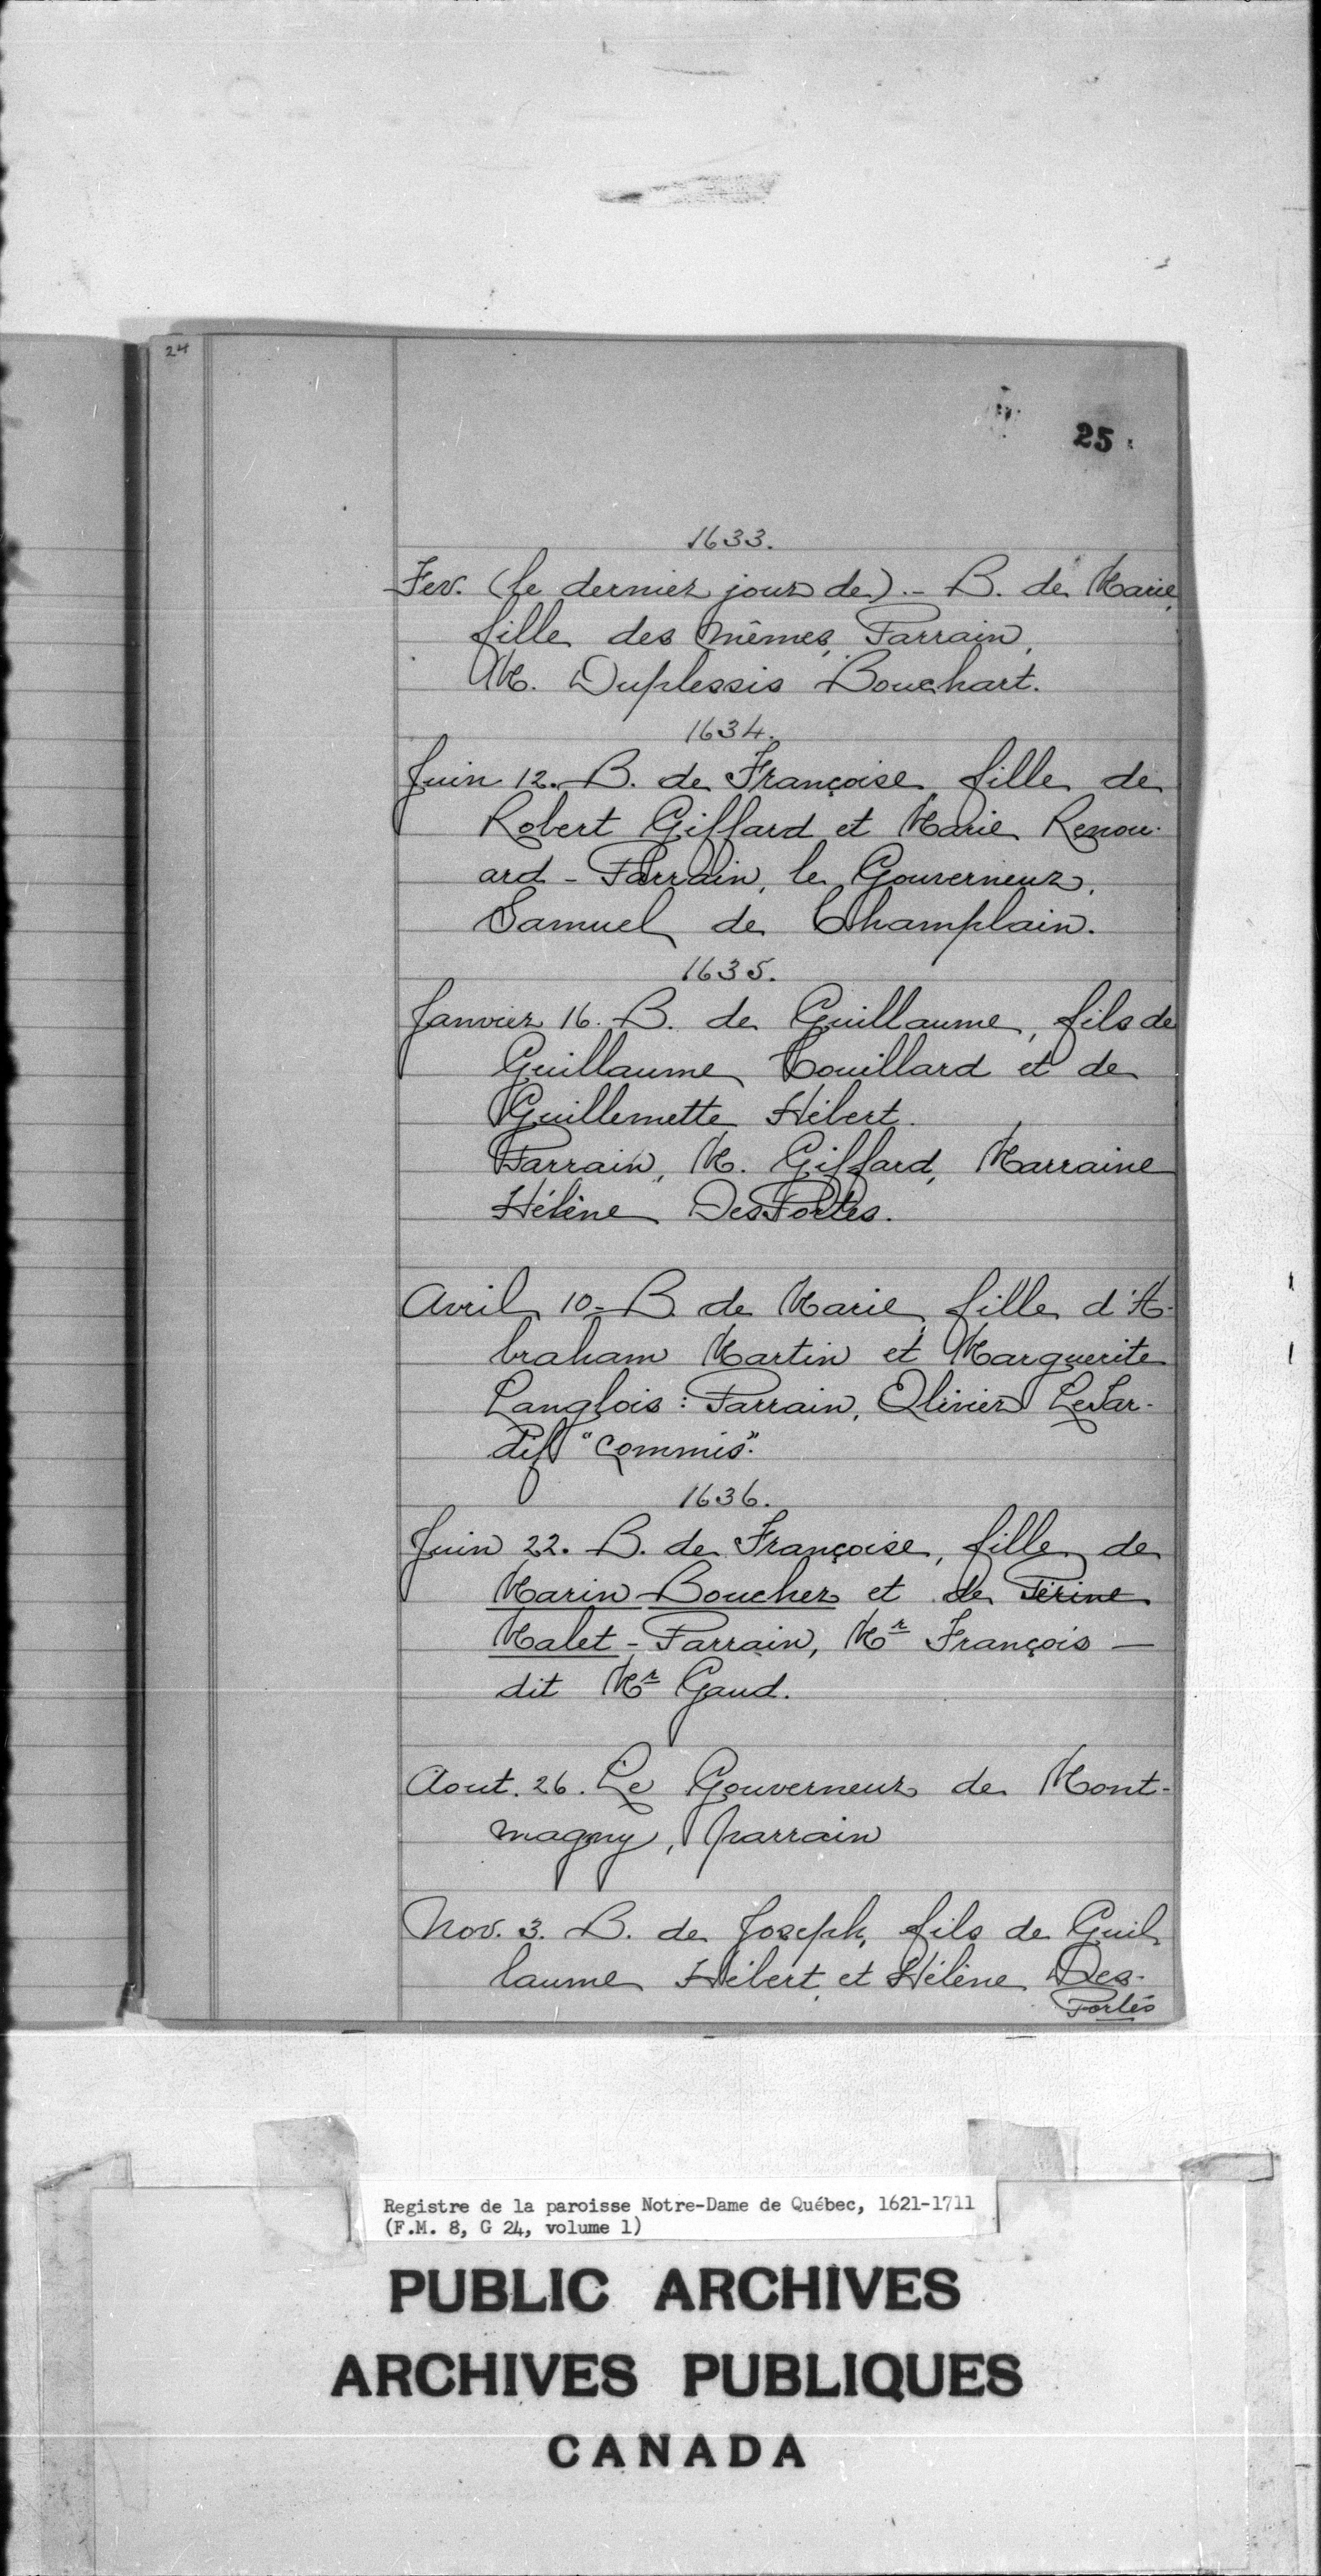 24
25
1633.
Fev. (le dernier jour de).- B. de Marie,
fille des mêmes, Parrain,
M. Duplessis Bouchart.
1634.
Juin 12. B. de Françoise, fille de
Robert Giffard et Marie Renou-
ard - Parrain, le Gouverneur,
Samuel de Champlain.
1635.
Janvier 16. B. de Guillaume, fils de
Guillaume Couillard et de
Guillemette Hébert.
Parrain, M. Giffard, Marraine
Hélène DesPortes.
Avril 10 - B. de Marie, fille d'A-
braham Martin et Marguerite
Langlois : Parrain, Olivier LeTar-
dif "commis".
1636.
Juin 22. B. de Françoise, fille de
Marin Boucher et de Périne
Malet - Parrain, Mr François —
dit Mr Gaud.
Aout. 26. Le Gouverneur de Mont-
magny, parrain
Nov. 3. B. de Joseph, fils de Guil
laume Hébert et Hélène Des-
Portes
Registre de la paroisse Notre-Dame de Québec, 1621-1711
(F.M. 8, G 24, volume 1)
PUBLIC ARCHIVES
ARCHIVES PUBLIQUES
CANADA